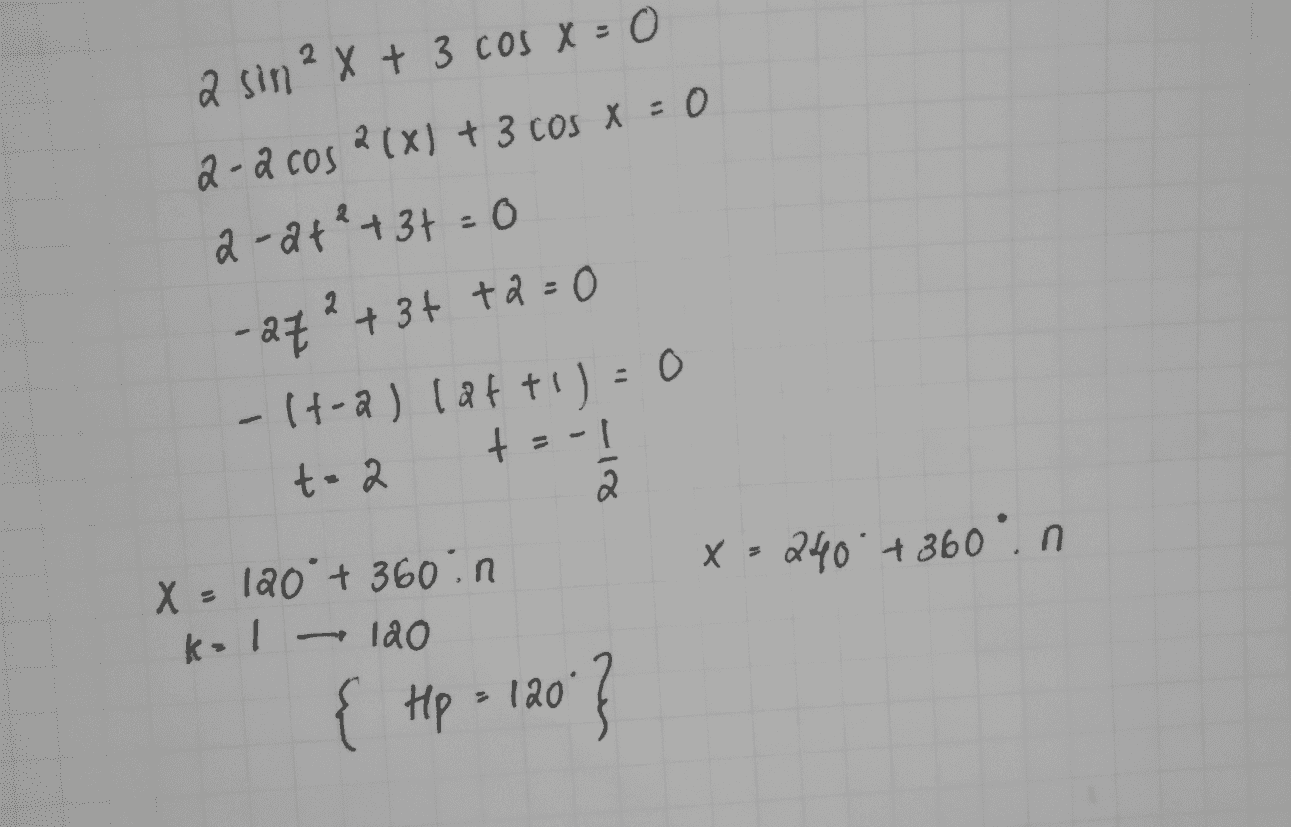 2 sin² x + 3 cos x = 0
2 - 2 cos²(x) + 3 cos x = 0
2 - 2t² + 3t = 0
-2t² + 3t + 2 = 0
- (t-2) (2t +1) = 0
t = 2 t = -1/2
x = 120° + 360°. n x = 240° + 360°. n
k = 1 → 120
{ Hp = 120° }